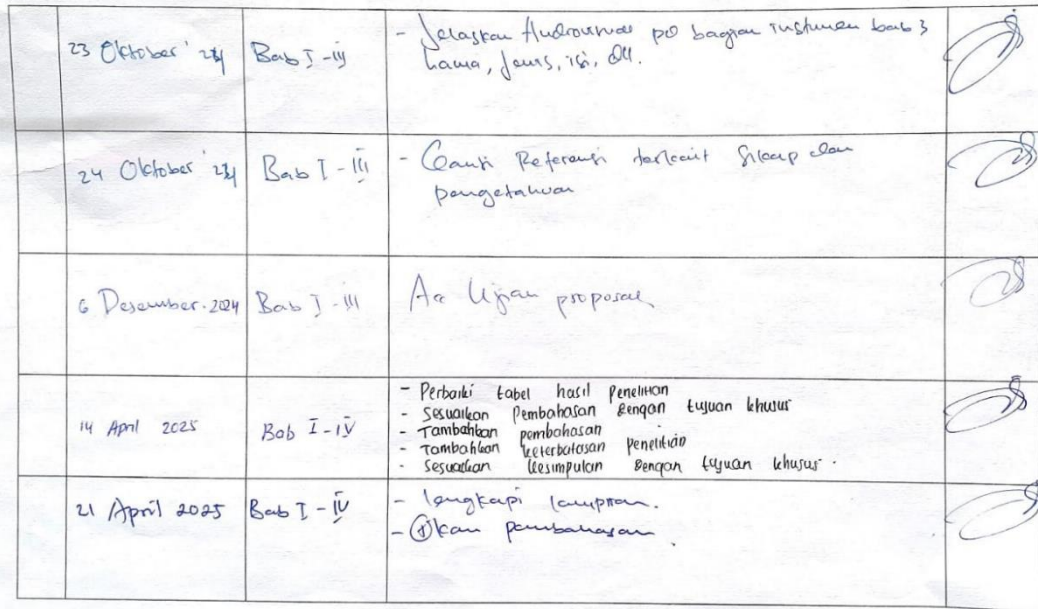 23 Oktober '24 Bab I - III - Jelaskan Audiovisual pd bagian instumen bab 3
nama, jenis, isi, dll.
24 Oktober '24 Bab I - III - Ganti Referensi terkait Sikap dan
pengetahuan
6 Desember 2024 Bab I - III Acc Ujian proposal
- Perbaiki tabel hasil penelitian
- Sesuaikan Pembahasan dengan tujuan khusus
14 April 2025 Bab I - IV - Tambahkan pembahasan
- Tambahkan keterbatasan penelitian
- Sesuaikan kesimpulan dengan tujuan khusus.
21 April 2025 Bab I - IV - lengkapi lampiran.
- pembahasan